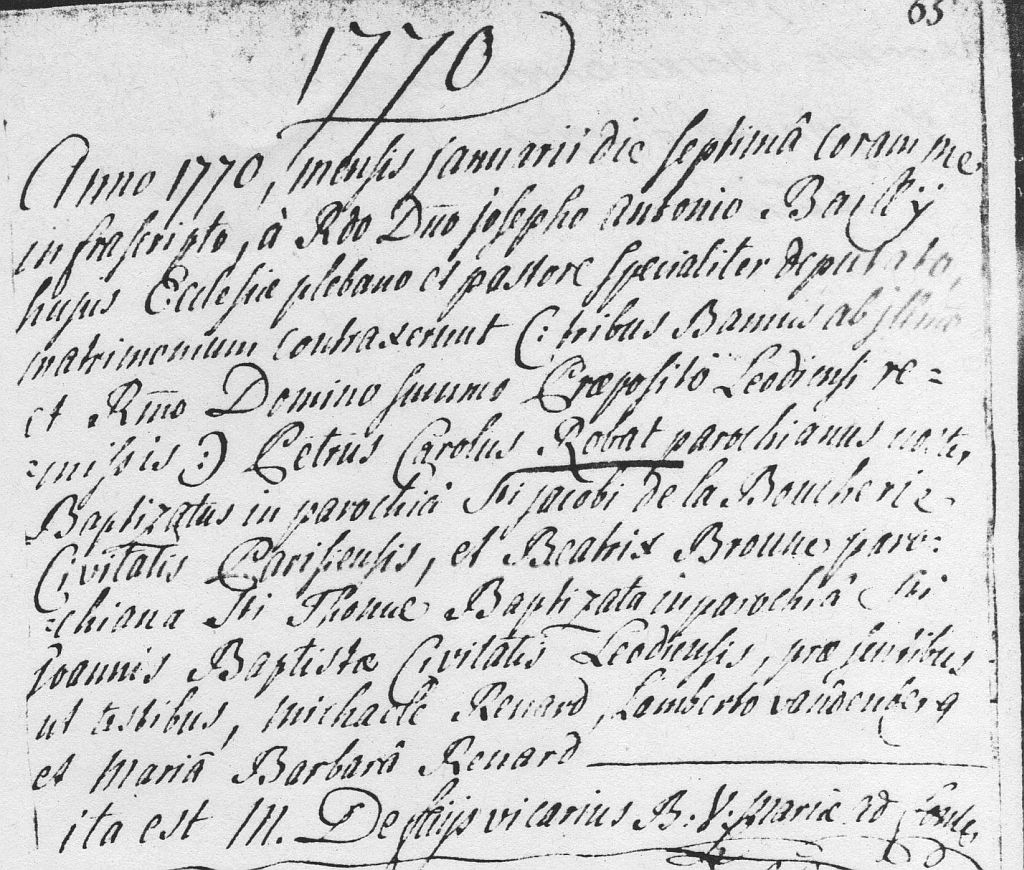 65
1770
Anno 1770, mensis januarii die septimâ coram me
infrascripto, à Rdo Dño josepho antonio Bailly
hujus Ecclesiæ plebano et pastore specialiter deputato,
matrimonium contraxerunt (: tribus Bannis ab jllmo
et Rm̃o Domino summo Præposito Leodiensi re=
=missis :) Petrus Carolus Robat parochianus noster
Baptizatus in parochiâ Sti jacobi de la Boucherie
Civitatis Parisiensis, et Beatrix Bronne paro=
=chiana Sti Thomæ Baptizata in parochiâ Sti
joannis Baptistæ Civitatis Leodiensis, præsentibus
ut testibus, michaele Renard, Lamberto vandenberg
et mariâ Barbarâ Renard
ita est M. vicarius B: V: mariæ ad fontes